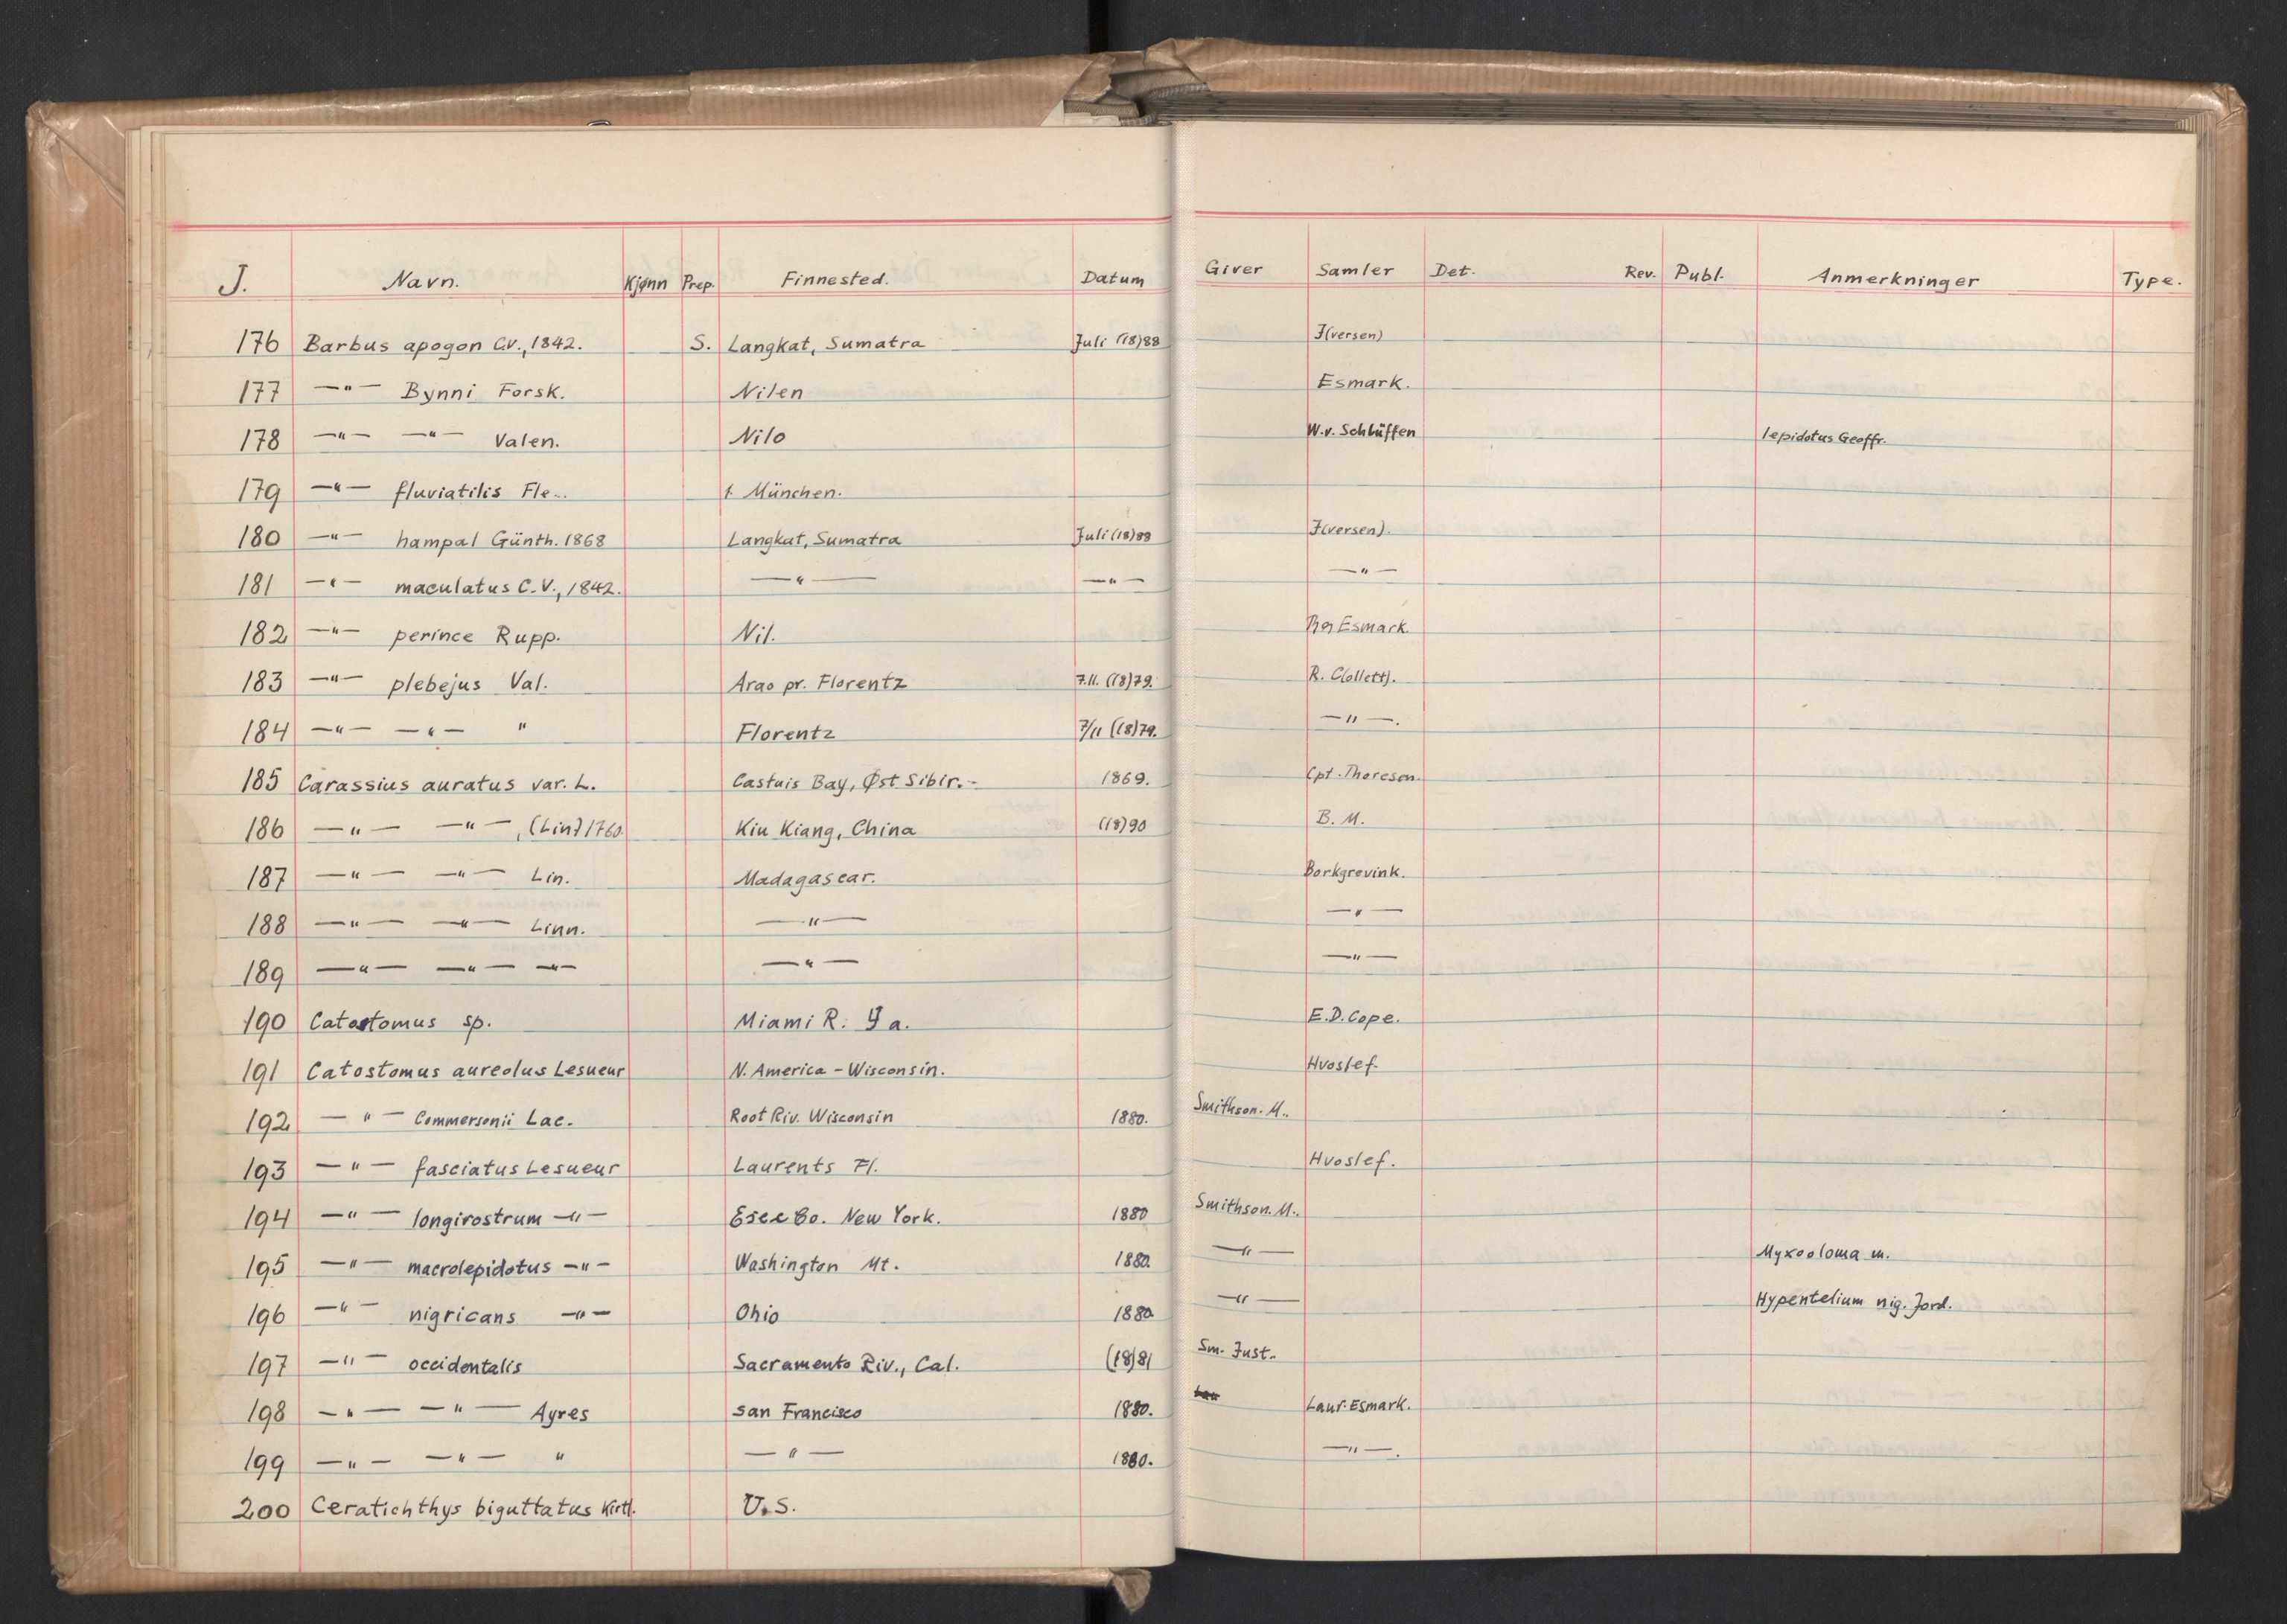 J. Navn. Kjønn Prep. Finnested. Datum Giver Samler Det. Rev. Publ. Anmerkninger Type.
176 Barbus apogon C.V., 1842. S. Langkat, Sumatra Juli (18)88 I(versen)
177 —"— Bynni Forsk. Nilen Esmark.
178 —"— —"— Valen. Nilo W.v. Schlüffen lepidotus Geoffr.
179 —"— fluviatilis Fle.. f. München.
180 —"— hampal Günth. 1868 Langkat, Sumatra Juli (18)88 I(versen).
181 —"— maculatus C.V., 1842. —"— —"— —"—
182 —"— perince Rupp. Nil. Esmark.
183 —"— plebejus Val. Arao pr. Florentz 7.11. (18)79. R. C(ollett).
184 —"— —"— " Florentz 7/11 (18)79. —"—.
185 Carassius auratus var. L. Castuis Bay, Øst Sibir.- 1869. Cpt. Thoreson.
186 —"— —"—, (Lin) 1760 Kiu Kiang, China (18)90 B. M.
187 —"— —"— Lin. Madagascar. Borkgrevink.
188 —"— —"— Linn. —"— —"—
189 —"— —"— —"— —"— —"—
190 Catostomus sp. Miami R. E.D. Cope.
191 Catostomus aureolus Lesueur N. America - Wisconsin. Hvoslef.
192 —"— Commersonii Lac. Root Riv. Wisconsin 1880. Smithson. M..
193 —"— fasciatus Lesueur Laurents Fl. Hvoslef.
194 —"— longirostrum —"— Co. New York. 1880 Smithson. M..
195 —"— macrolepidotus —"— Washington Mt. 1880. —"— Myxooloma m.
196 —"— nigricans —"— Ohio 1880 —"— Hypentelium nig. Jord.
197 —"— occidentalis Sacramento Riv., Cal. (18)81 Sm. Inst.
198 —"— —"— Ayres San Francisco 1880. Laur. Esmark.
199 —"— —"— " —"— 1880. —"—.
200 Ceratichthys biguttatus Kirtl. U.S.